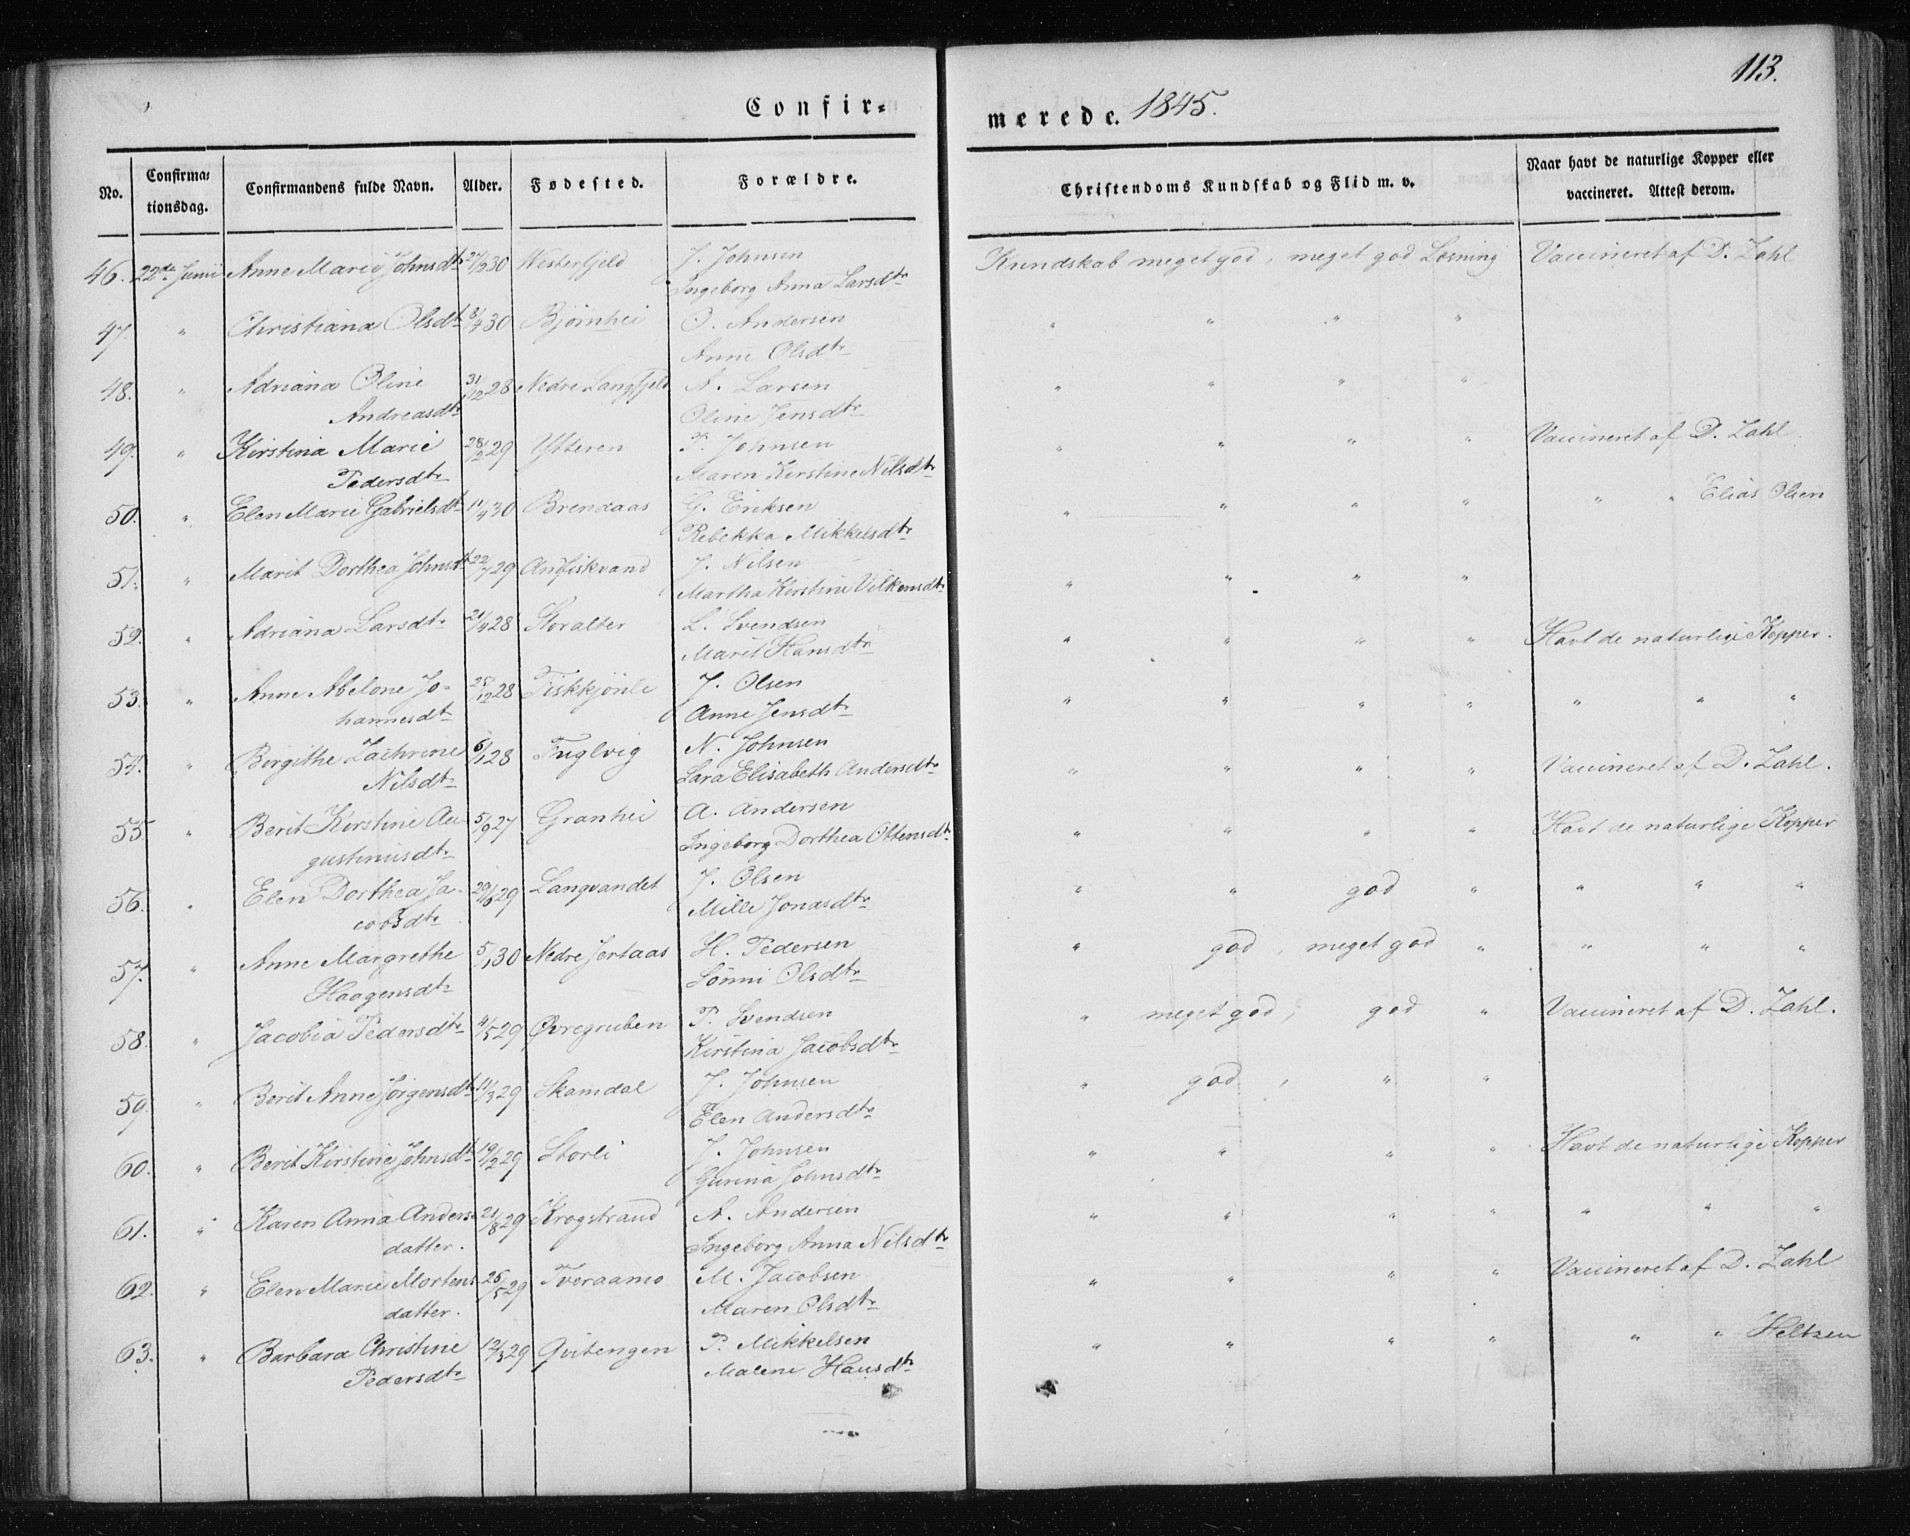 113.
Confir-
merede. 1845.
No. Confirma-tionsdag. Confirmandens fulde Navn. Alder. Fødested. Forældre. Christendoms Kundskab og Flid m. v. Naar havt de naturlige Kopper eller vaccineret. Attest derom.
46. 22de Junii Anne Marie Johnsdtr 27/2 30 Westerfjeld J. Johnsen Kundskab meget god, meget god Læsning Vaccineret af D. Zahl
Ingeborg Anna Larsdtr
47. " Christiana Olsdtr 8/4 30 Bjørnhei O. Andersen " " " "
Anne Olsdtr
48. " Adriana Oline 31/12 28 Nedre Langfjeld A. Larsen " " " "
Andreasdtr Oline Jensdtr
49. " Kirstina Marie 28/2 29 Ytteren P. Johnsen " " " " Vaccineret af D. Zahl
Pedersdtr Maren Kirstine Nilsdtr
50. " Elen Marie Gabrielsdtr 11/4 30 Brendaas G. Eriksen " " " " " " Elias Olsen
Rebekka Mikkelsdtr
51. " Marit Dorthea Johnsdtr 22/7 29 Andfiskvand J. Nilsen " " " "
Martha Kirstine Vilkensdtr
52. " Adriana Larsdtr 21/4 28 Storalter L. Svendsen " " " " Havt de naturlige Kopper.
Marit Hansdtr
53. " Anne Abelone Jo- 25/12 28 Fiskkjønli J. Olsen " " " " " " "
hannesdtr Anne Jensdtr
54. " Birgithe Zachrine 6/1 28 Fuglvig N. Johnsen " " " " Vaccineret af D. Zahl.
Nilsdtr Sara Elisabeth Andersdtr
55 " Berit Kirstine Au- 5/9 27 Granhei A. Andersen " " " " Havt de naturlige Kopper
gustinusdtr Ingeborg Dorthea Ottensdtr
56. " Elen Dorthea Ja- 29/6 29 Langvandet J. Olsen " " god " " " "
cobsdtr Mille Jonasdtr
57. " Anne Margrethe 5/1 30 Nedre Jertaas H. Pedersen " god, meget god " " " "
Haagensdtr Sönni Olsdtr
58. " Jacobia Pedersdtr 4/5 29 Øvregruben P. Svendsen " meget god, god " Vaccineret af D. Zahl.
Kirstina Jacobsdtr
59. " Berit Anne Jörgensdtr 11/3 29 Skamdal J. Johnsen " god, " "
Elen Andersdtr
60. " Berit Kirstine Johnsdtr 19/2 29 Storli J. Johnsen " " " " Havt de naturlige Kopper
Gurina Johnsdtr
61. " Karen Anna Anders- 21/8 29 Krogstrand A. Andersen " " " " " " "
datter. Ingeborg Anna Nilsdtr
62. " Elen Marie Mortens- 26/5 29 Tveraamo M. Jacobsen " " " " Vaccineret af D. Zahl
datter. Maren Olsdtr
63. " Barbara Christine 12/3 29 Qvitengen P. Mikkelsen " " " " " " Heltzen
Pedersdtr Malene Hansdtr